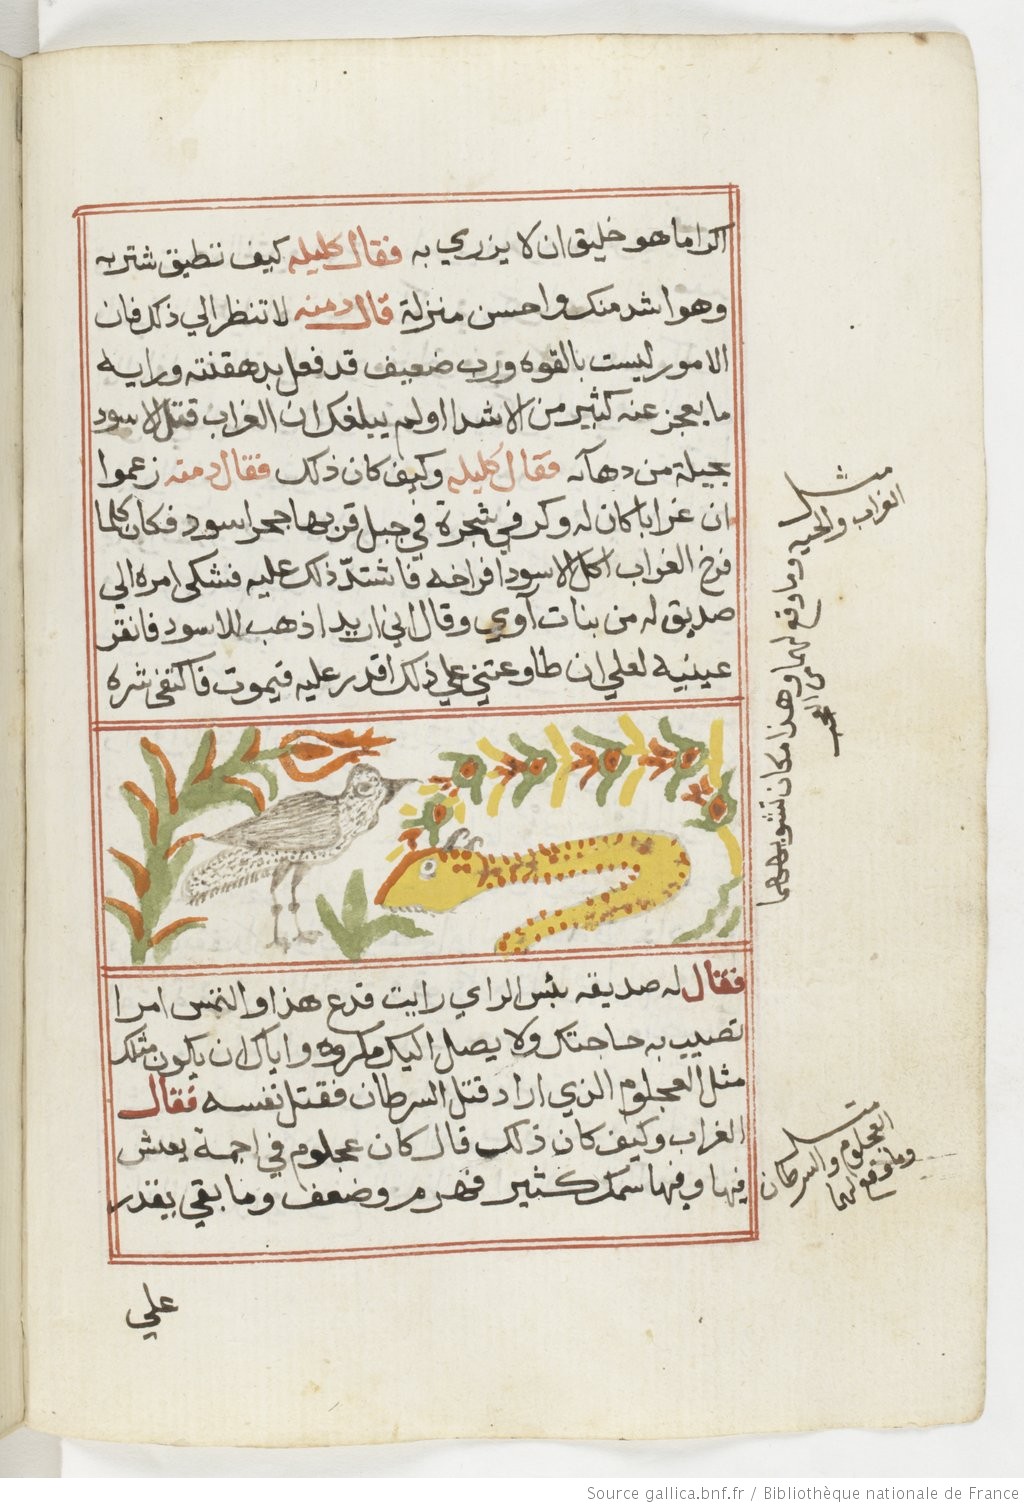 اكراما هو خليق ان لا يزري به فقال كليله كيف تطيق شتربه
وهو اشد منك واحسن منزلة قال دمنه لا تنظر الي ذلك فان
الامور ليست بالقوه ورب ضعيف قد فعل بدهقنته ورايه
ما يعجز عنه كثير من الاشدا اولم يبلغك ان الغراب قتل الاسود
بحيلة من دهآئه فقال كليله وكيف كان ذلك فقال دمنه زعموا
ان غرابا كان له وكر في شجرة في جبل قربها جحر اسود فكان كلما
فرخ الغراب اكل الاسود افراخه فاشتدّ ذلك عليه فشكى امره الي
صديق له من بنات آوي وقال اني اريد اذهب للاسود فانقر
عينيه لعلي ان طاوعتني علي ذلك اقدر عليه فيموت فاكتفى شره
مثل
الغراب والحيه وما وقع لهما
من العجب
وهذا مكان تشويطهما
فقال له صديقه بئس الراي رايت فدع هذا والتمس امرا
تصيب به حاجتك ولا يصل اليك مكروه واياك ان يكون مثلك
مثل العجلوم الذي اراد قتل السرطان فقتل نفسه فقال
الغراب وكيف كان ذلك قال كان عجلوم في اجمة يعيش
فيها وفيها سمك كثير فهرم وضعف وما بقي يقدر
مثل
العجلوم والسرطان
وما وقع لهما
علي
Source gallica.bnf.fr / Bibliothèque nationale de France